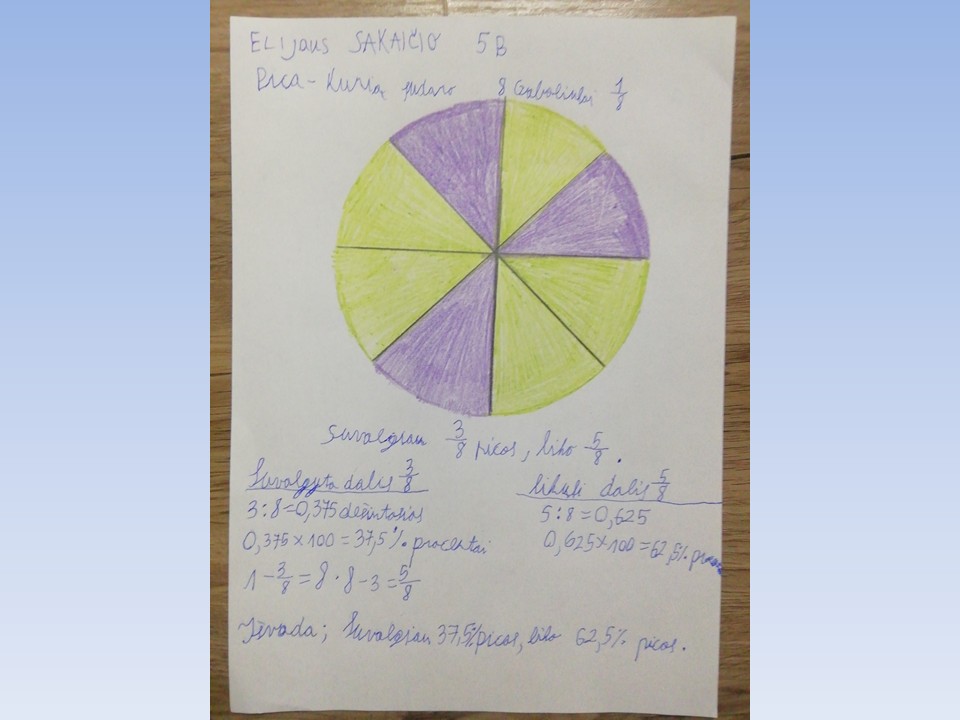 ELIJAUS SAKAIČIO 5B
Pica - Kurią sudaro 8 Gabaliukai 1/8
Suvalgiau 3/8 picos, liko 5/8.
Suvalgyta dalis 3/8
3:8=0,375 dešimtainis
0,375×100=37,5% procentai
1-3/8=8·8-3=5/8
likusi dalis 5/8
5:8=0,625
0,625×100=62,5%
Išvada; Suvalgiau 37,5% picos, liko 62,5% picos.